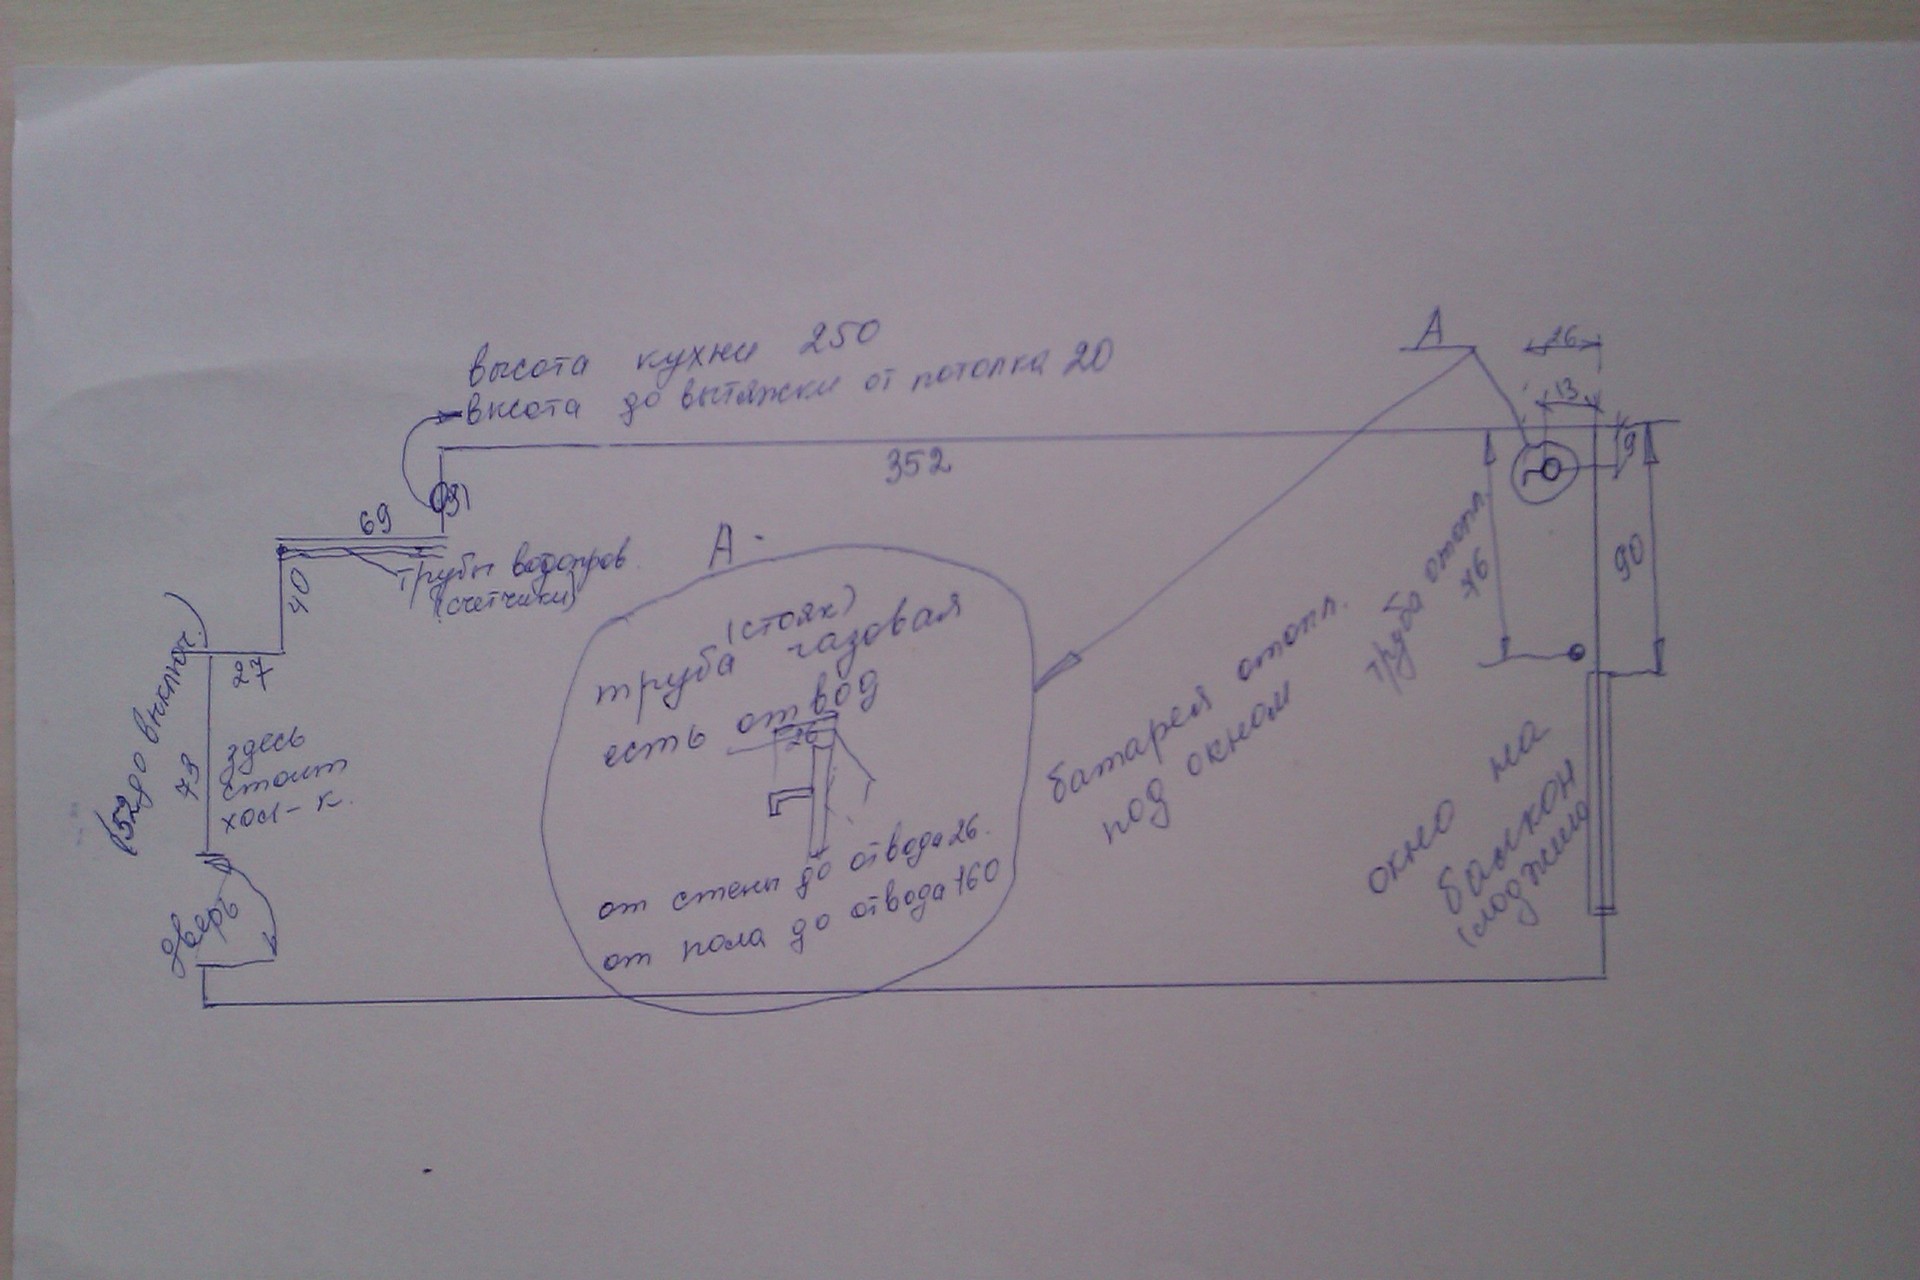 высота кухни 250
высота до вытяжки от потолка 20
А
26
13
9
352
90
76
труба отопл.
69
31
трубы водопров.
(счетчики)
40
27
(52 до выключ.)
79
здесь
стоит
хол-к.
дверь
А -
(стояк)
труба газовая
есть отвод
26
от стены до отвода 26.
от пола до отвода 160
батарея отопл.
под окном
окно на
балкон
(лоджию)